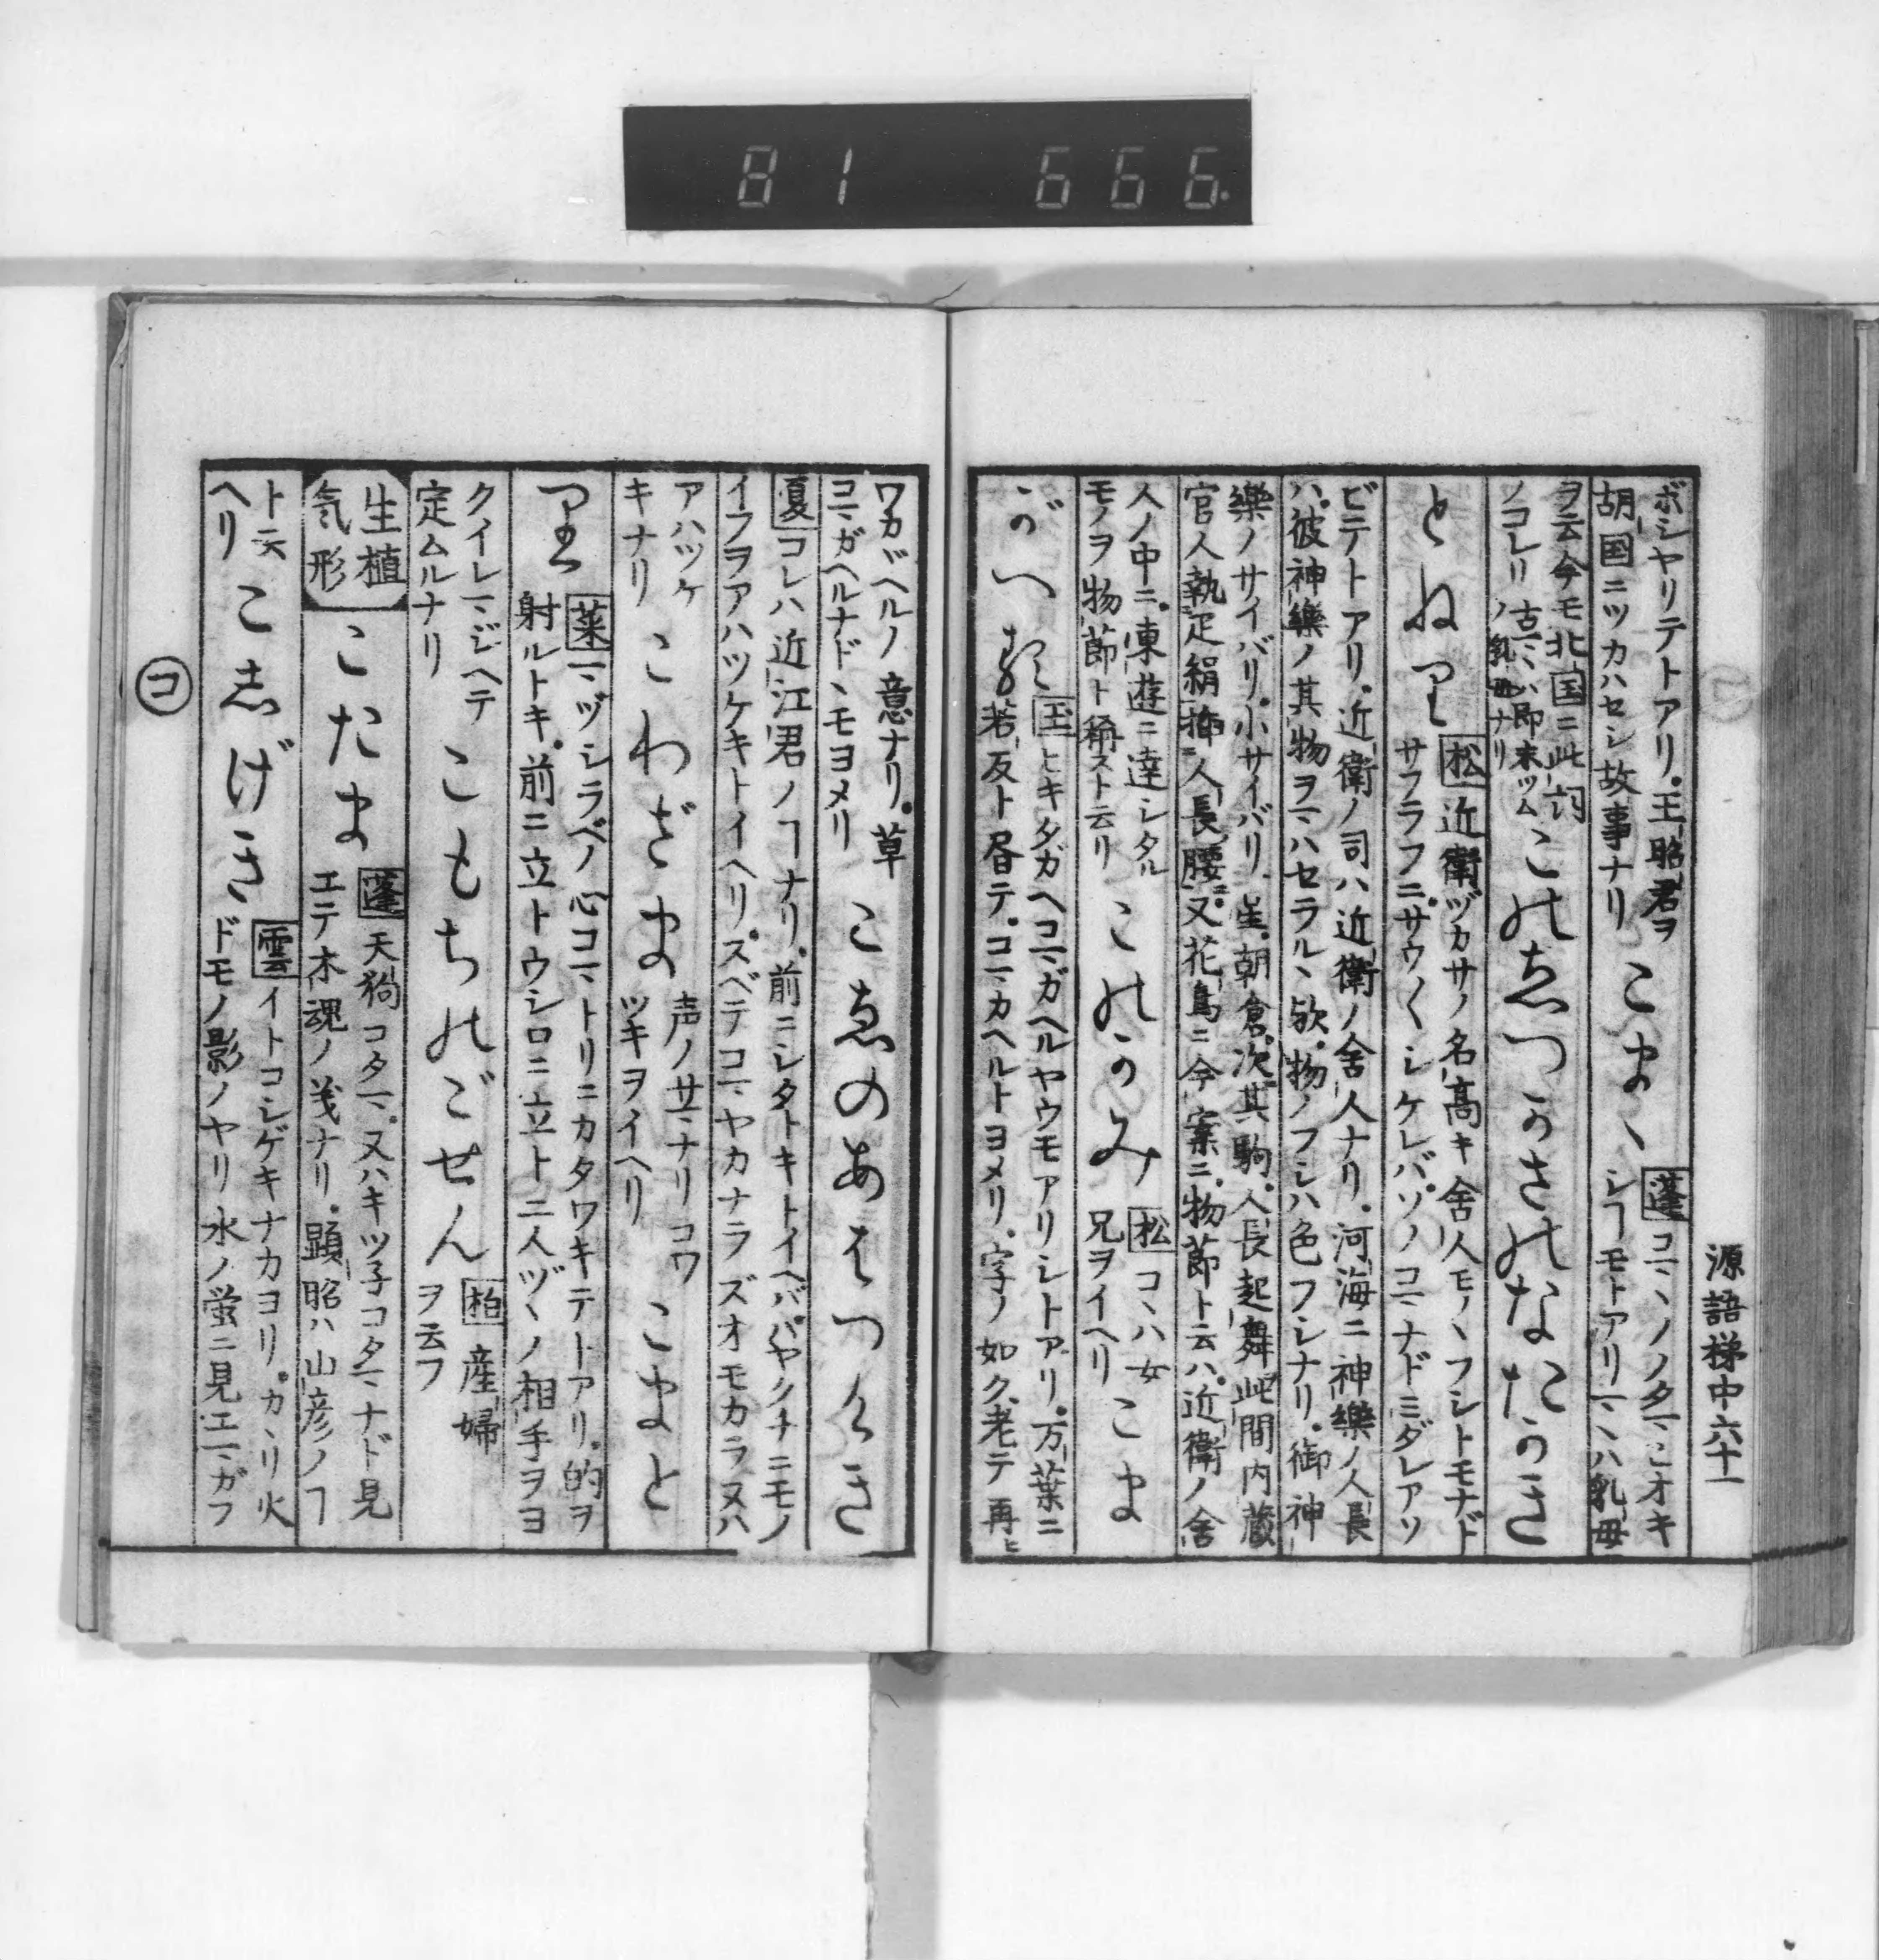 81 666
源語梯中六十一
ボシヤリテトアリ。王昭君ヲ
胡国ニツカハセシ故事ナリ
こまゝ
蓬コマヽノノタマヒオキ
シヿモトアリマヽハ乳母
ヲ云今モ北国ニ此詞
ノコレリ古マヽハ即末ツム
ノ乳母ナリ
このゑつかさのなたかき
とねり
松近衛ヅカサノ名高キ舎人モノヽフシトモナド
サフラフニ。サウ〱シケレバ。ソノコマナドミダレアソ
ビテトアリ。近衛ノ司ハ近衛ノ舎人ナリ。河海ニ神樂ノ人長
ハ。彼神樂ノ其物ヲマハセラルヽ欤。物ノフシハ色フシナリ。御神
樂ノサイバリ。小サイバリ。星。朝倉。次其駒。人長起舞此間内蔵
官人執疋絹挿人長腰。又花鳥ニ今案ニ。物節ト云ハ。近衛ノ舎
人ノ中ニ。東遊ニ達シタル
モノヲ物節ト稱スト云リ
このかみ
松コヽハ女
兄ヲイヘリ
こま
がへる
玉ヒキタガヘコマガヘルヤウモアリシトアリ。万葉ニ
若反ト昬テ。コマカヘルトヨメリ。字ノ如ク。老テ再ヒ
ワカガヘルノ意ナリ。草
コマガヘルナドヽモヨメリ
こゑのあはつけき
夏コレハ近江君ノヿナリ。前ニシタトキトイヘバ。ハヤクチニモノ
イフヲアハツケキトイヘリ。スベテコマヤカナラズオモカラヌハ
アハツケ
キナリ
こわざま
声ノサマナリコワ
ツキヲイヘリ
こまと
りに
菜マヅシラベノ心コマトリニカタワキテトアリ。的ヲ
射ルトキ。前ニ立トウシロニ立ト二人ヅヽノ相手ヲヨ
クイレマジヘテ
定ムルナリ
こもちのごぜん
柏産婦
ヲ云フ
生植
気形
こたま
蓬天狗コタマ。又ハキツ子コタマナド見
エテ木魂ノ義ナリ。顕昭ハ山彦ノヿ
ト云
ヘリ
こしげき
雲イトコシゲキナカヨリ。カヽリ火
ドモノ影ノヤリ水ノ螢ニ見エマガフ
コ